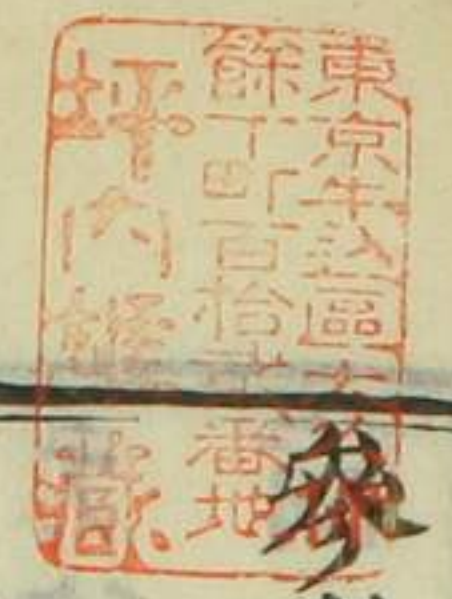 東京牛込區大
餘丁町百拾弐番地
坪内雄藏